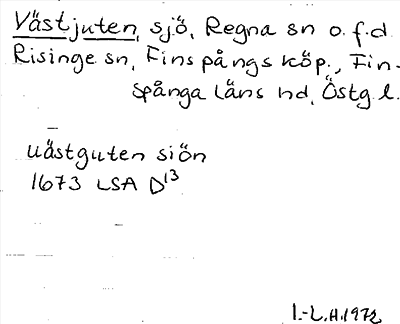 Västjuten, sjö, Regna sn o. f.d.
Risinge sn, Finspångs köp., Fin-
spånga läns hd, Östg. l.
uästguten siön
1673 LSA D13
I.-L.H. 1972